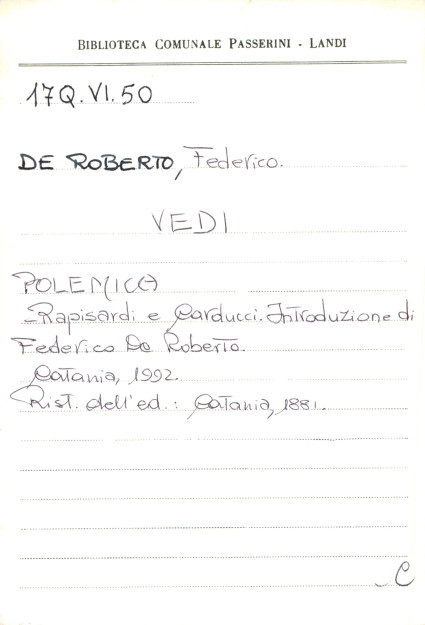 BIBLIOTECA COMUNALE PASSERINI - LANDI
17Q.VI.50
DE ROBERTO, Federico.
VEDI
POLEMICA
Rapisardi e Carducci. Introduzione di
Federico De Roberto.
Catania, 1992.
Rist. dell'ed.: Catania, 1881.
C